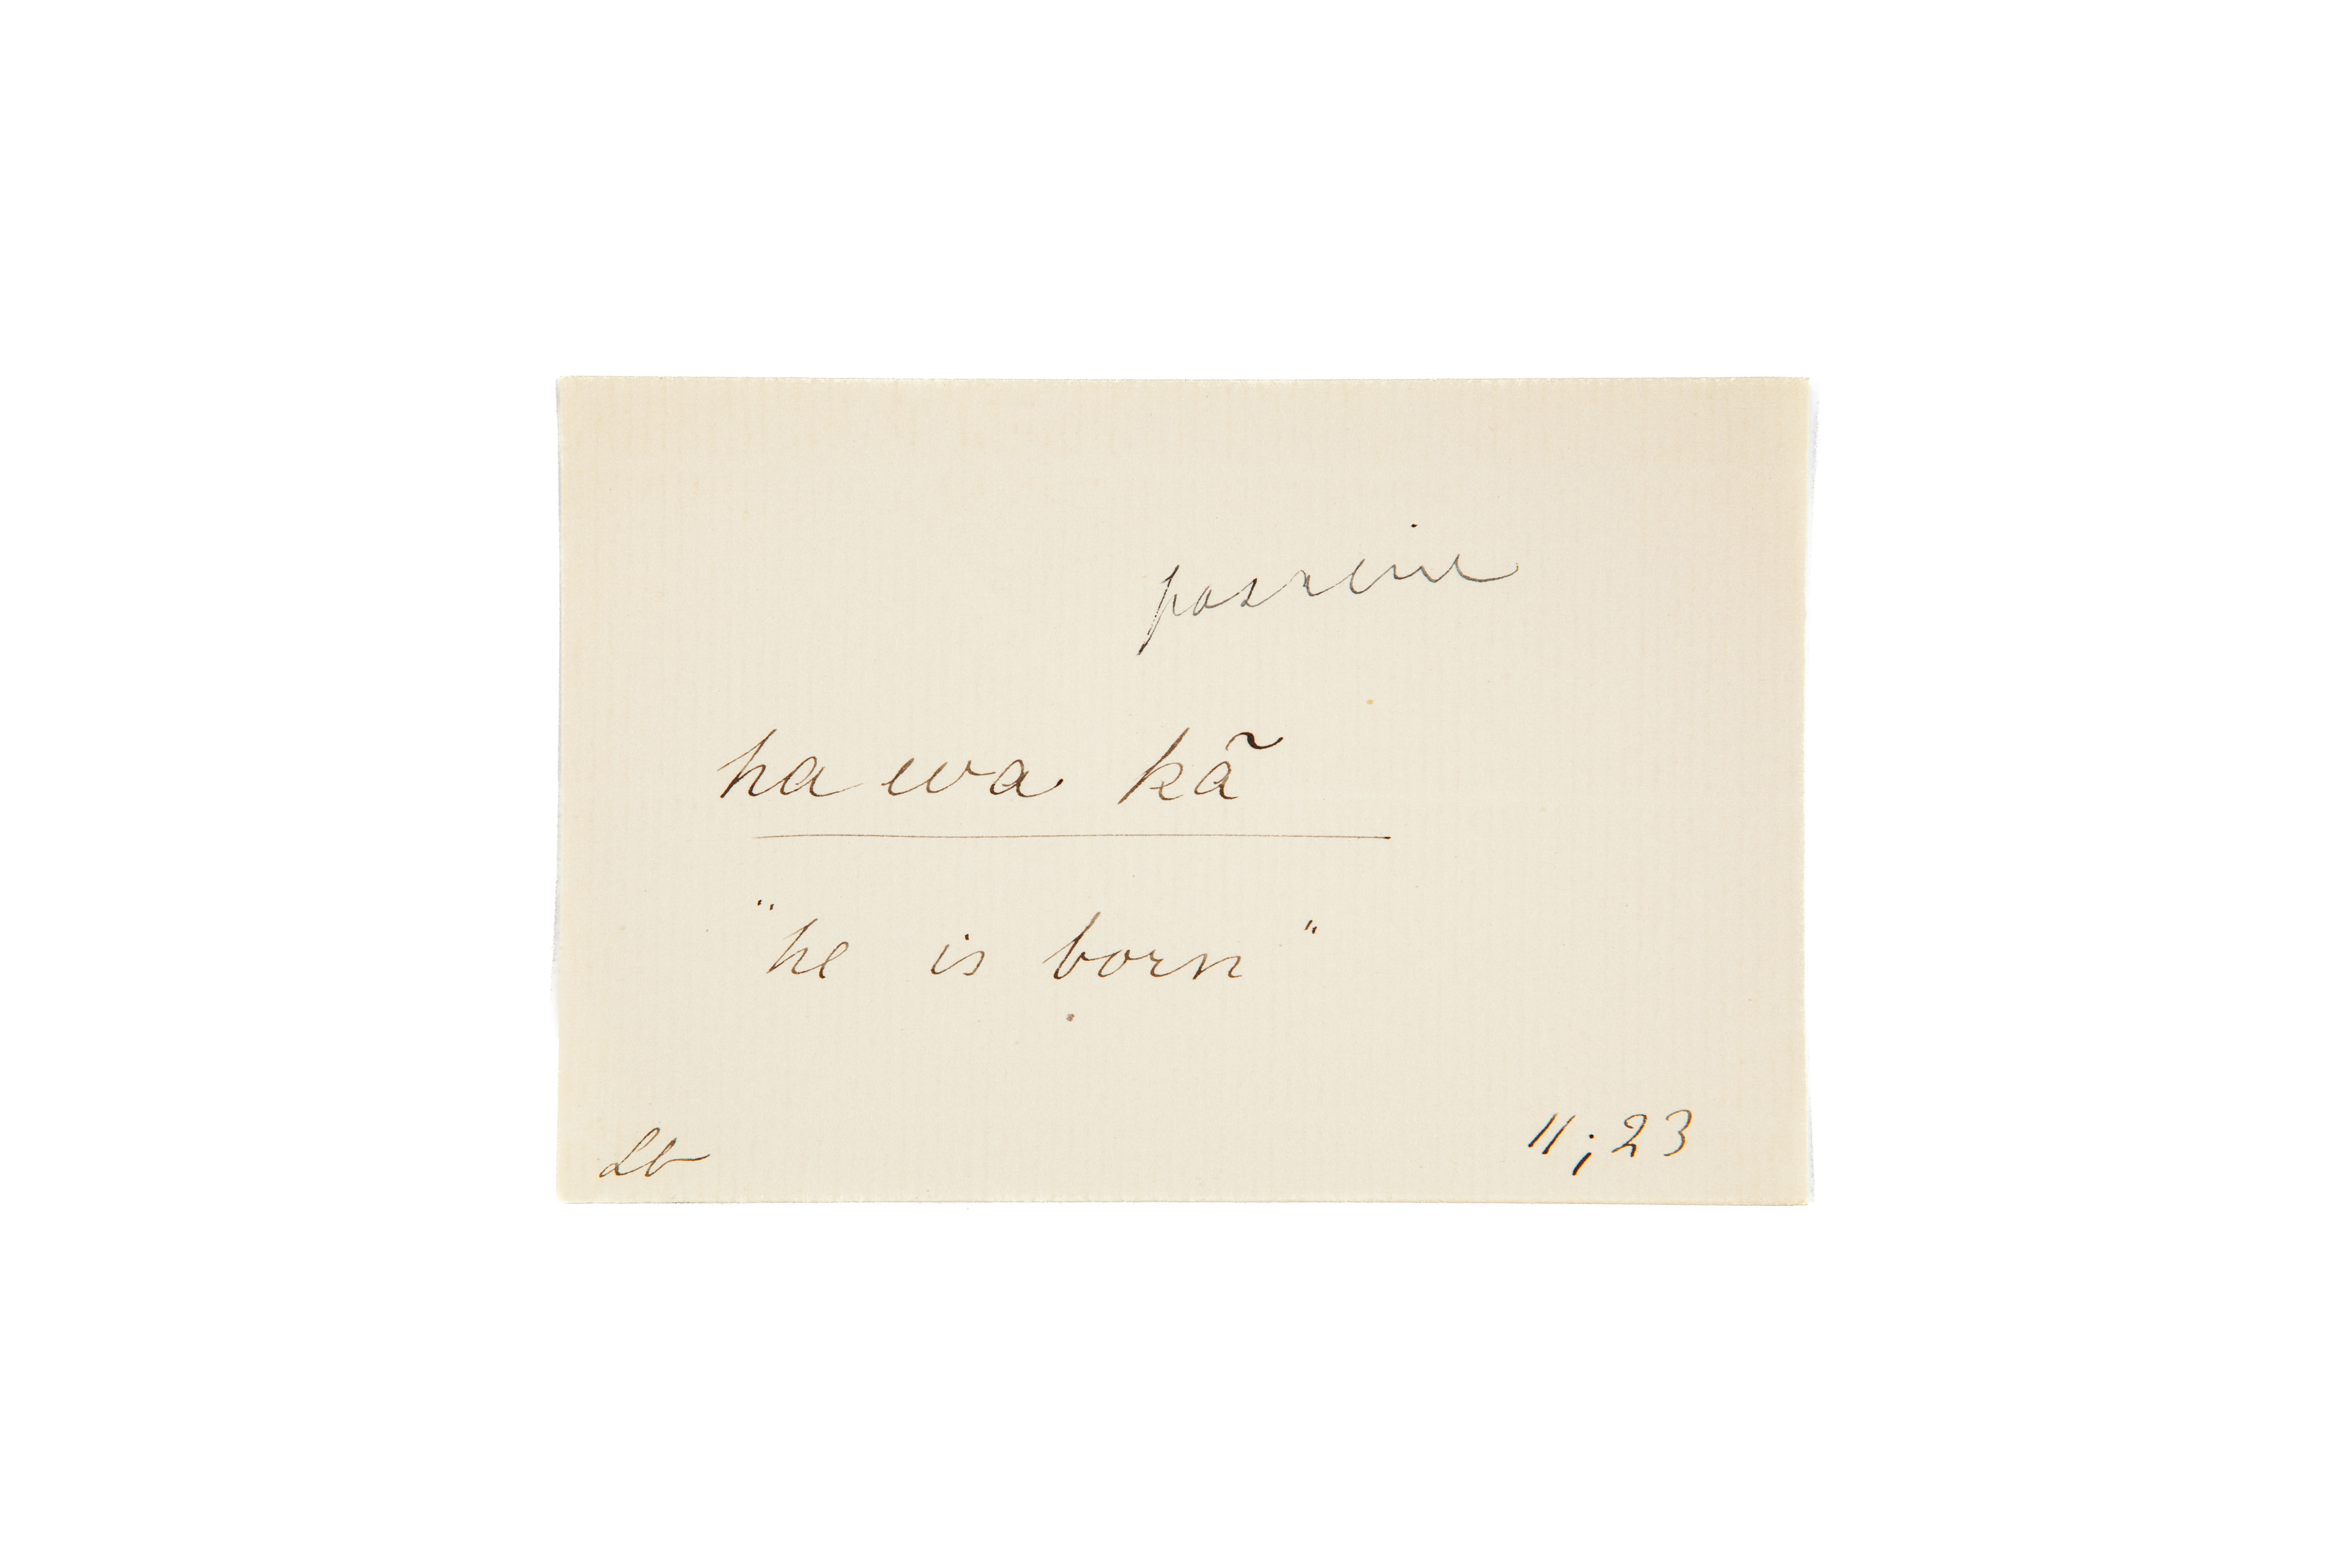 passive
hawa kã
"he is born"
Lb 11; 23